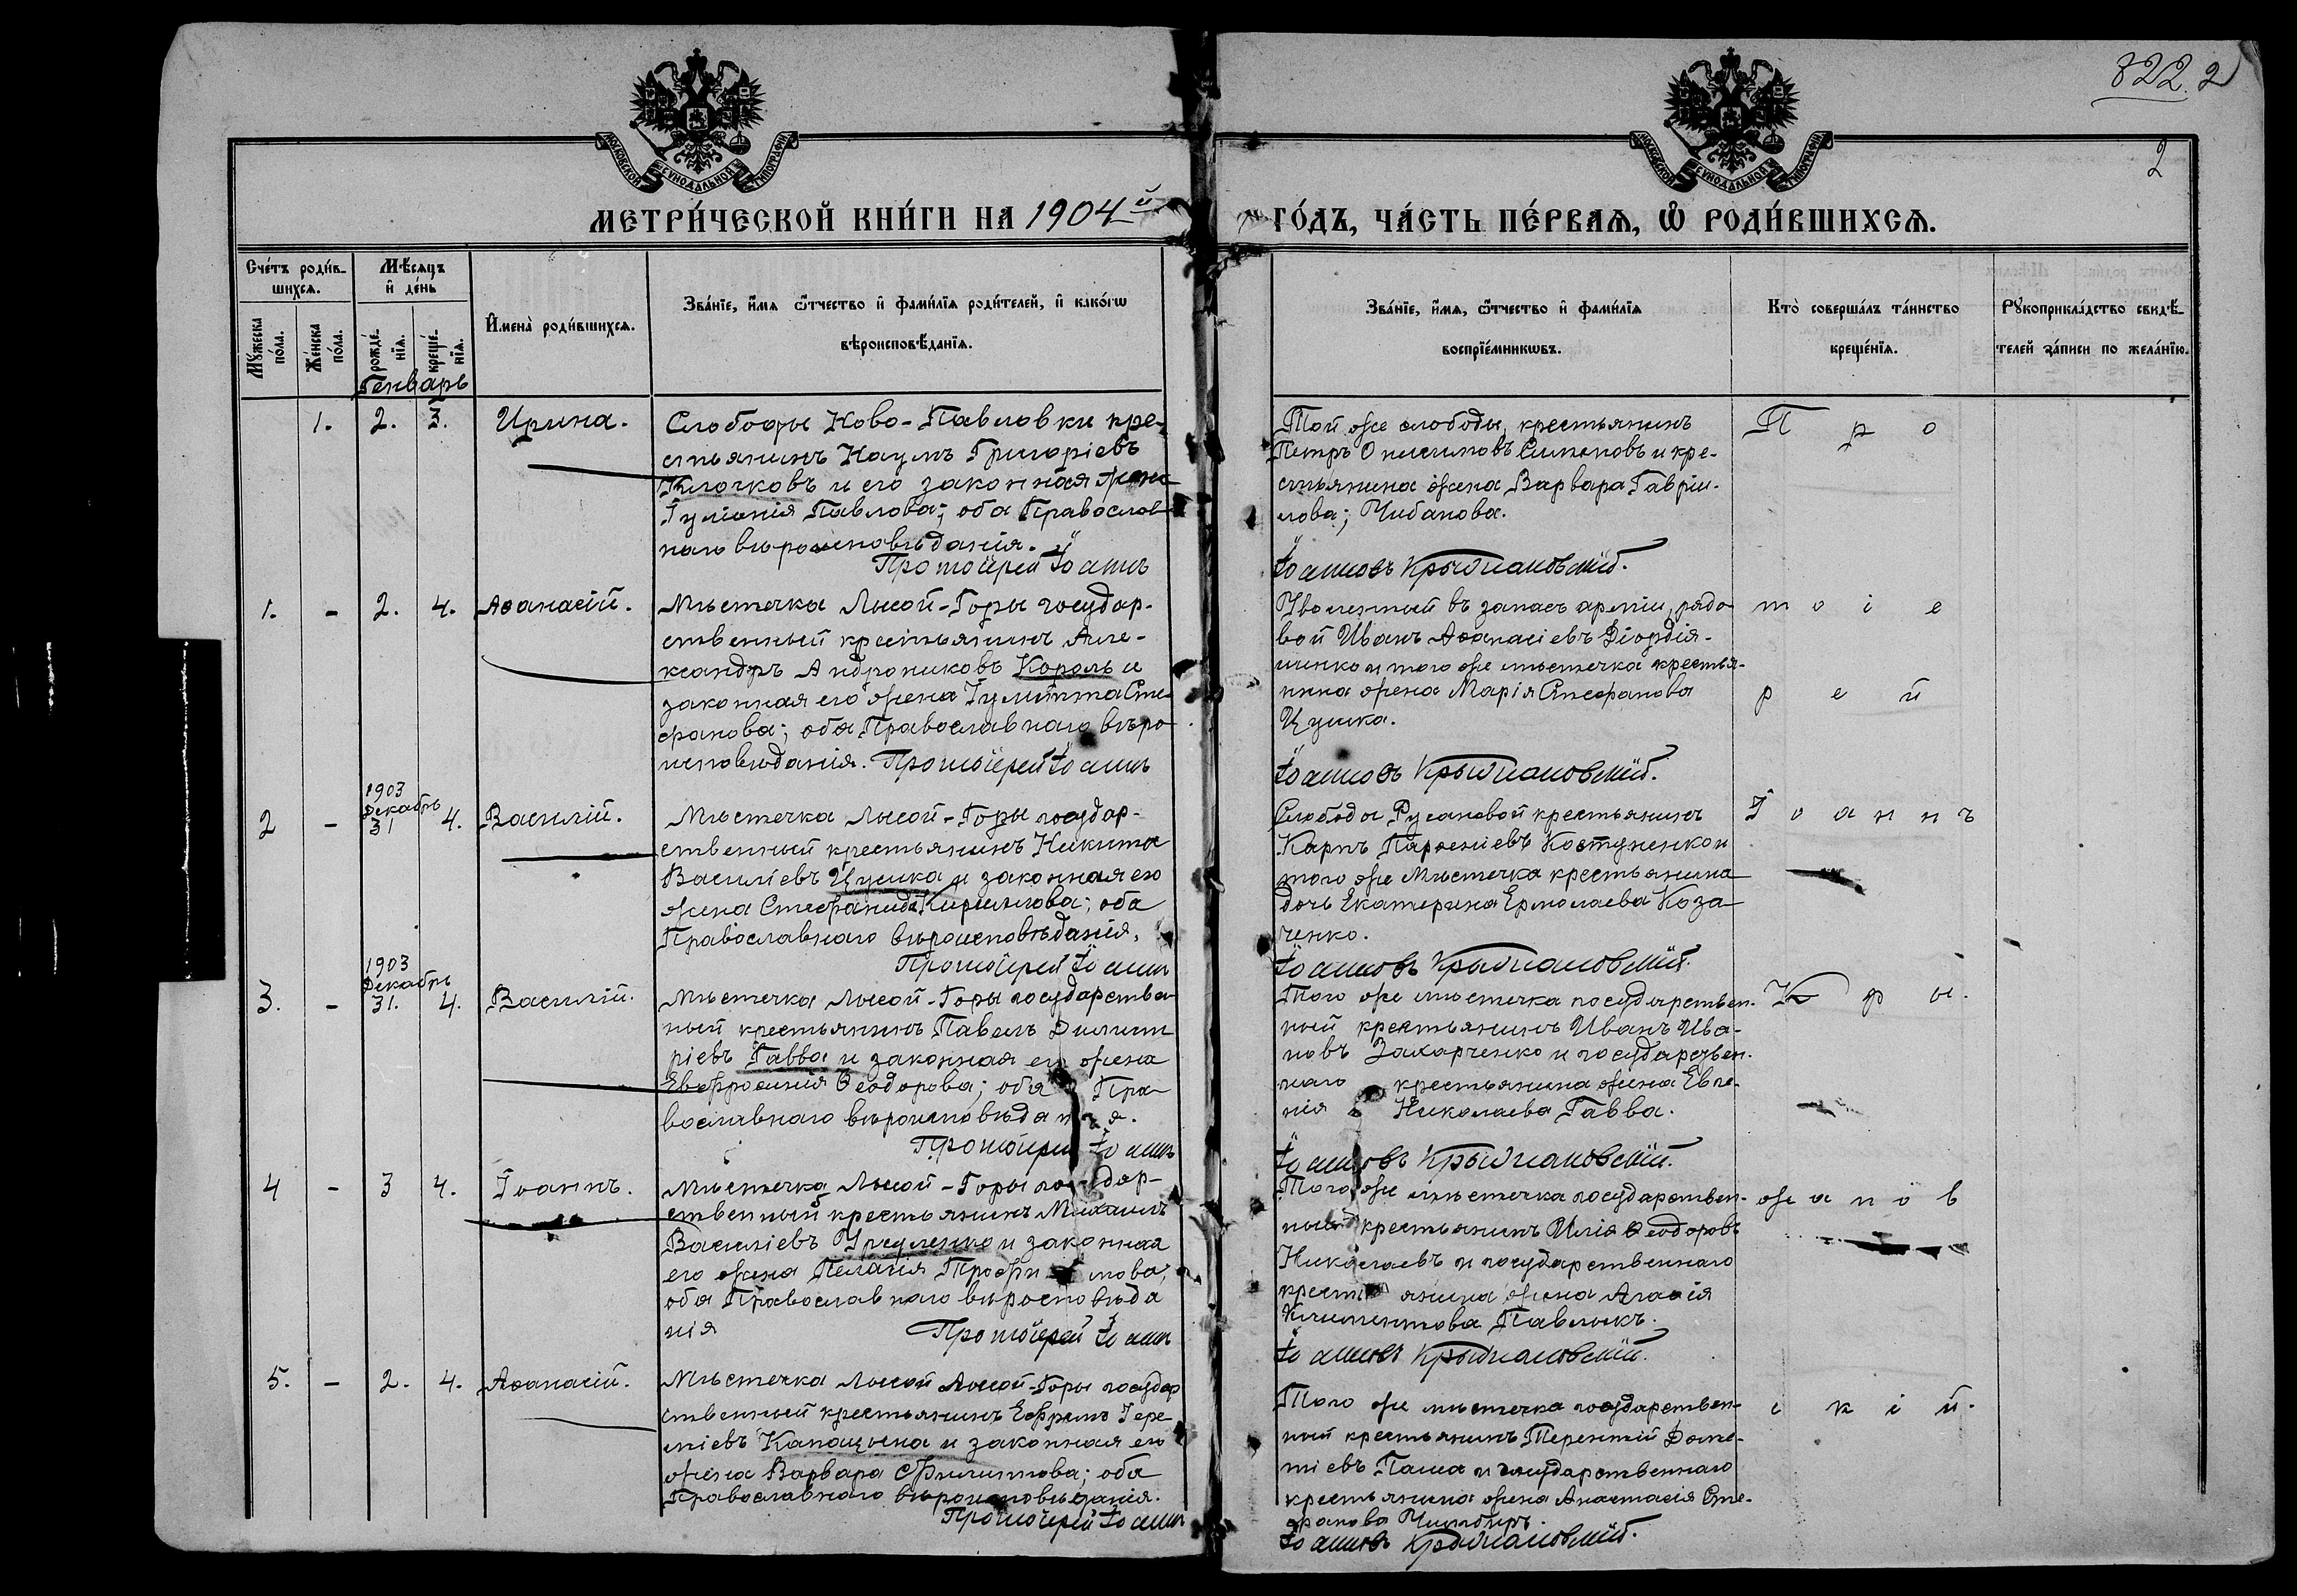 822. 2
2
МОСКОВСКОЙ СѴНОДАЛЬНОЙ ТИПОГРАФІИ
МОСКОВСКОЙ СѴНОДАЛЬНОЙ ТИПОГРАФІИ
МЕТРИ́ЧЕСКОЙ КНИ́ГИ НА 1904й
ГО́ДЪ, ЧА́СТЬ ПЕ́РВАѦ, Ѡ҆ РОДИ́ВШИХСѦ.
Сче́тъ роди́в-
шихсѧ.
Мꙋ́жеска по́ла.
Же́нска по́ла.
Мѣ́сѧцъ и҆ де́нь
рожде́нїѧ.
креще́нїѧ.
И҆мена̀ роди́вшихсѧ.
Зва́нїе, и҆́мѧ Ѿчество и҆ фами́лїѧ роди́телей, и҆ како́гѡ
вѣроисповѣ́данїѧ.
Зва́нїе, и҆́мѧ, Ѿчество и҆ фами́лїѧ
воспрїе́мникѡвъ.
Кто̀ соверша́лъ та́инство
креще́нїѧ.
Рꙋкоприкла́дство свидѣ́-
телей за́писи по жела́нїю.
Генварь
1. 2. 3. Ирина.
Слободы Ново-Павловки кре-
стьянинъ Наумъ Григоріевъ
Клочковъ и его законная жена
Іуліанія Павлова; оба Православ-
наго вѣроисповѣданія.
Протоіерей Іоаннъ
Той же слободы, крестьянинъ
Петръ Онисимовъ Симоновъ и кре-
стьянина жена Варвара Гаврии-
лова; Чибанова.
Іоанновъ Крыжановскій.
П р о
1. - 2. 4. Аѳанасій.
Мѣстечка Лысой-Горы государ-
ственный крестьянинъ Але-
ксандръ Андрониковъ Король и
законная его жена Іулитта Сте-
фанова; оба Православнаго вѣро-
исповѣданія. Протоіерей Іоаннъ
Уволенный въ запасъ арміи, рядо-
вой Иванъ Аѳанасіевъ Діордія-
щенко и того же мѣстечка крестья-
нина жена Марія Стефанова
Цушка.
Іоанновъ Крыжановскій.
т о і е
р е й
2 - 1903 Декабрь 31 4. Василій.
Мѣстечка Лысой-Горы государ-
ственный крестьянинъ Никита
Василіевъ Цушка и законная его
жена Стефанида Кириллова; оба
Православнаго вѣроисповѣданія.
Протоіерей Іоаннъ
Слободы Русановой крестьянинъ
Карпъ Парѳеніевъ Костуненко и
того же Мѣстечка крестьянина
дочь Екатерина Ермолаева Коза-
ченко.
Іоанновъ Крыжановскій.
І о а н н ъ
3. - 1903 Декабрь 31. 4. Василій.
Мѣстечка Лысой-Горы государствен-
ный крестьянинъ Павелъ Димит
ріевъ Гавва и законная его жена
Евфросинія Ѳеодорова; оба Пра-
вославнаго вѣроисповѣданія.
Протоіерей Іоаннъ
Того же мѣстечка государствен-
ный крестьянинъ Иванъ Ива-
новъ Захарченко и государствен-
наго крестьянина жена Евге-
нія Николаева Гавва.
Іоанновъ Крыжановскій.
К р ы.
4 - 3 4. Іоаннъ.
Мѣстечка Лысой-Горы государ-
ственный крестьянинъ Михаилъ
Василіевъ и законная
его жена Пелагія Трофимова;
оба Православнаго вѣроисповѣда
нія Протоіерей Іоаннъ
Того же мѣстечка государствен-
ный крестьянинъ Илія Ѳеодоровъ
Николаевъ и государственнаго
крестьянина жена Агаѳія
Климентова Павлыкъ.
Іоанновъ Крыжановскій.
ж а н о в
5. - 2. 4. Аѳанасій.
Мѣстечка Лысой Лысой-Горы государ
ственный крестьянинъ Ефремъ Іере-
міевъ Капацына и законная его
жена Варвара Филиппова; оба
Православнаго вѣроисповѣданія.
Протоіерей Іоаннъ
Того же мѣстечка государствен-
ный крестьянинъ Терентій Доме-
тіевъ Паша и государственнаго
крестьянина жена Анастасія Сте-
фанова
Іоанновъ Крыжановскій.
с к і й.